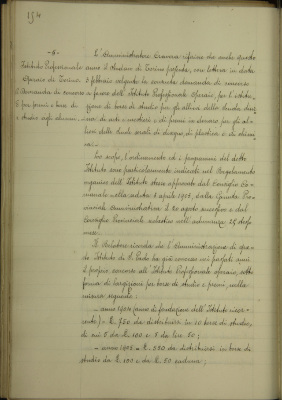 154
- 6 -
L'Amministratore Craveri riferisce che anche questo
Istituto Professionale anno il Sindaco di Torino partecipa, con lettera in data
Operaio di Torino. 3 febbraio volgente la consueta domanda di concorso
Domanda di concorso a favore dell'Istituto Professionale Operaio, per l'istitu-
per premi e borse di zione di borse di studio per gli allievi della scuola diur-
studio agli alunni. na di arti e mestieri e di premi in denaro per gli al-
lievi delle scuole serali di disegno, di plastica e di chimi-
ca.
Lo scopo, l'ordinamento ed i programmi del detto
Istituto sono particolarmente indicati nel Regolamento
organico dell'Istituto stesso approvato dal Consiglio Co-
munale nella seduta 5 aprile 1905, dalla Giunta Pro-
vinciale Amministrativa il 30 agosto successivo e dal
Consiglio Provinciale scolastico nell'adunanza 25 del
mese.
Il Relatore ricorda che l'Amministrazione di que-
sto Istituto di S. Paolo ha già concesso nei passati anni
il proprio concorso all'Istituto Professionale operaio, sotto
forma di largizioni per borse di studio e premi, nella
misura seguente:
- anno 1904 (anno di fondazione dell'Istituto
) - L. 750 da distribuirsi in 10 borse di studio,
di cui 5 da L. 100 e 5 da lire 50;
- anno 1905 - L. 550 da distribuirsi in borse di
studio da L. 100 e da L. 50 caduna;